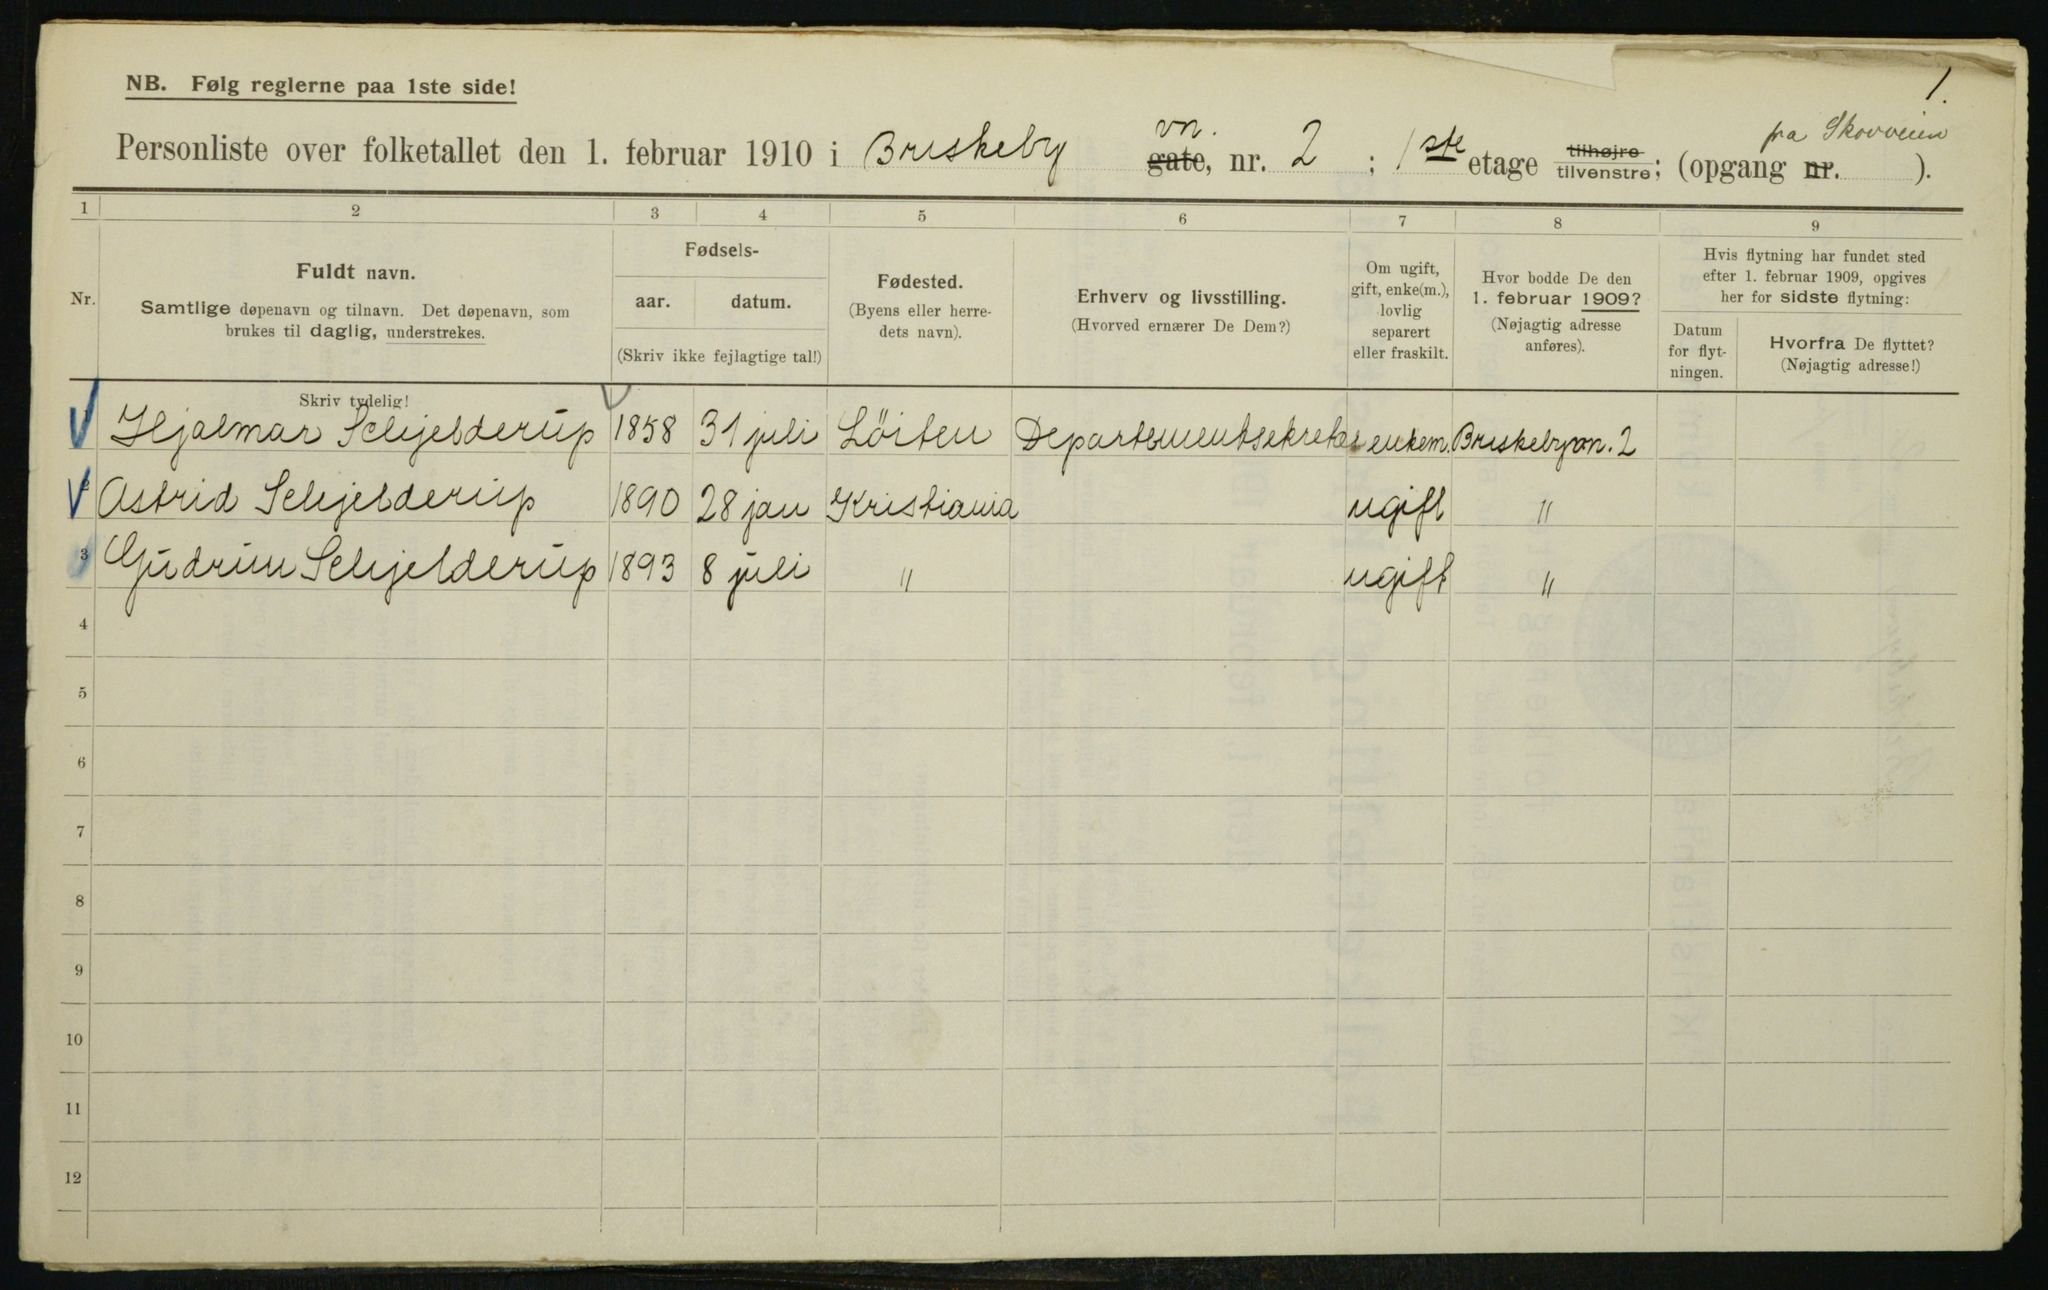 1.
NB. Følg reglerne paa 1ste side!
Personliste over folketallet den 1. februar 1910 i Briskeby vn. gate, nr. 2 ; 1ste etage tilhøjre tilvenstre; (opgang nr. fra Skovveien ).
1 2 3 4 5 6 7 8 9
Nr.
Fuldt navn.
Samtlige døpenavn og tilnavn. Det døpenavn, som
brukes til daglig, understrekes.
Fødsels-
aar. datum.
(Skriv ikke fejlagtige tal!)
Fødested.
(Byens eller herre-
dets navn).
Erhverv og livsstilling.
(Hvorved ernærer De Dem?)
Om ugift,
gift, enke(m.),
lovlig
separert
eller fraskilt.
Hvor bodde De den
1. februar 1909?
(Nøjagtig adresse
anføres).
Hvis flytning har fundet sted
efter 1. februar 1909, opgives
her for sidste flytning:
Datum
for flyt-
ningen.
Hvorfra De flyttet?
(Nøjagtig adresse!)
Skriv tydelig!
1 Hjalmar Schjelderup 1858 31 juli Löiten Departementsekretær enkem. Briskebyvn. 2
2 Astrid Schjelderup 1890 28 jan Kristiania ugift "
3 Gudrun Schjelderup 1893 8 juli " ugift "
4
5
6
7
8
9
10
11
12